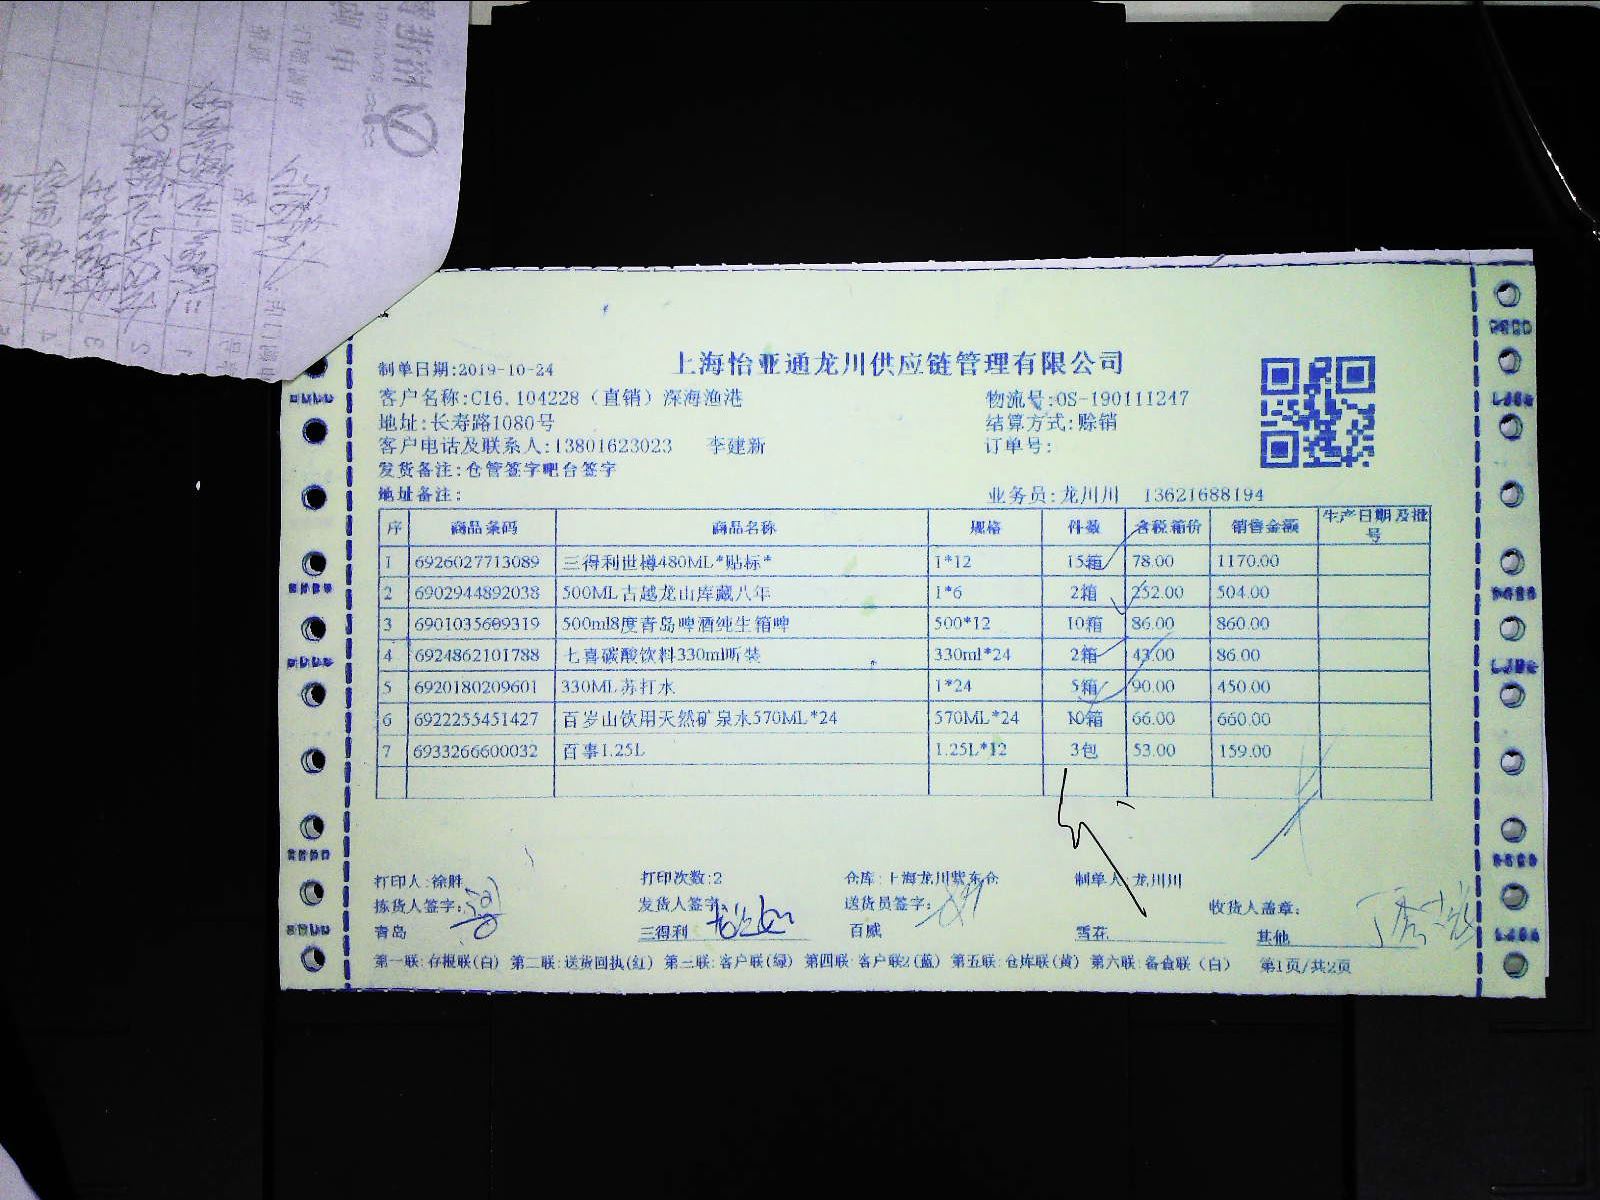 上海怡亚通龙川供应链管理有限公司
制单日期:2019-10-24
客户名称:C16.104228（直销）深海渔港 物流号:OS-190111247
地址:长寿路1080号 结算方式:赊销
客户电话及联系人:13801623023 李建新 订单号:
发货备注:仓管签字吧台签字
地址备注: 业务员:龙川川 13621688194
序 商品条码 商品名称 规格 件数 含税箱价 销售金额 生产日期及批号
1 6926027713089 三得利世樽480ML*贴标* 1*12 15箱 78.00 1170.00
2 6902944892038 500ML古越龙山库藏八年 1*6 2箱 252.00 504.00
3 6901035609319 500ml8度青岛啤酒纯生箱啤 500*12 10箱 86.00 860.00
4 6924862101788 七喜碳酸饮料330ml听装 330ml*24 2箱 43.00 86.00
5 6920180209601 330ML苏打水 1*24 5箱 90.00 450.00
6 6922255451427 百岁山饮用天然矿泉水570ML*24 570ML*24 10箱 66.00 660.00
7 6933266600032 百事1.25L 1.25L*12 3包 53.00 159.00
打印人:徐胜 打印次数:2 仓库:上海龙川紫东仓 制单人:龙川川
拣货人签字: 发货人签字: 送货员签字: 收货人盖章:
青岛 三得利 百威 雪花 其他
第一联:存根联(白) 第二联:送货回执(红) 第三联:客户联(绿) 第四联:客户联2(蓝) 第五联:仓库联(黄) 第六联:备查联（白） 第1页/共2页